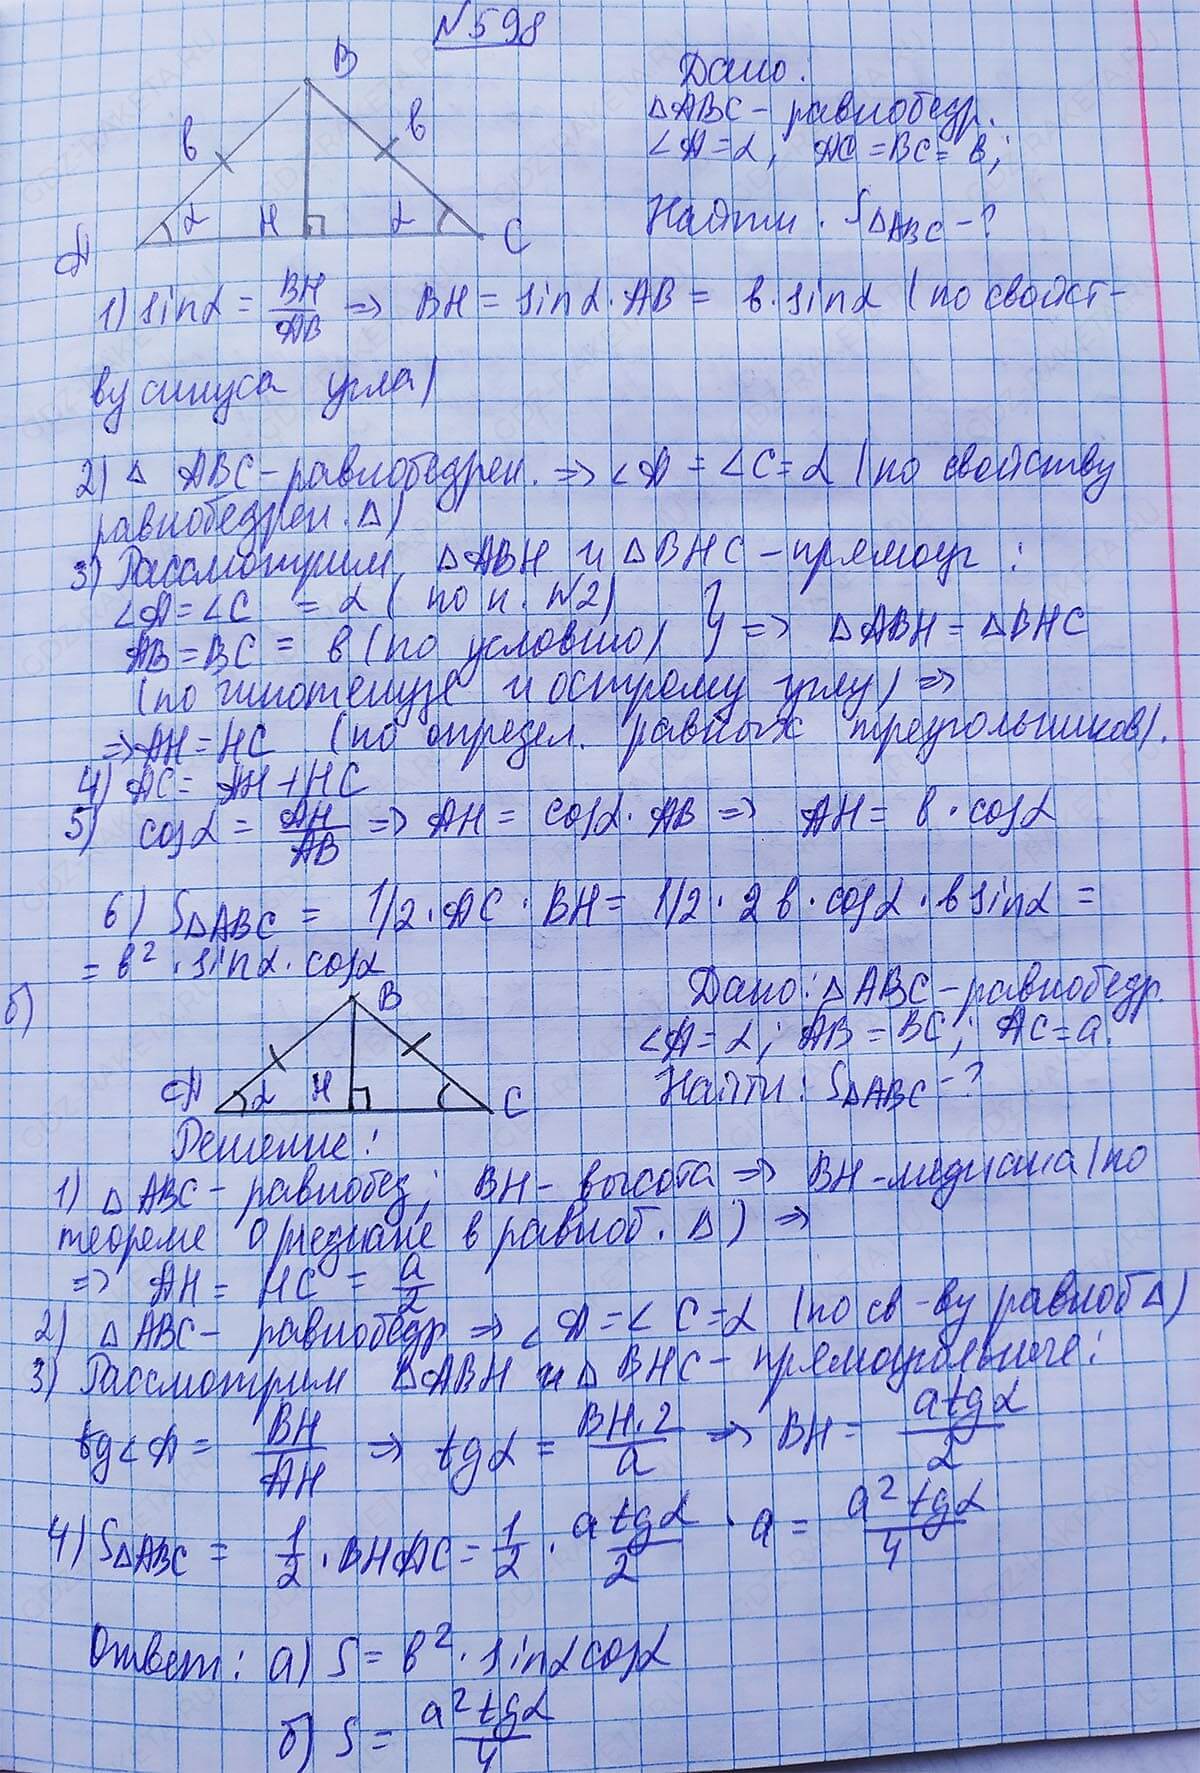 №598
B
Дано:
△ABC – равнобедр.
в
в
∠A = α; AC = BC = в;
Найти: S△ABC – ?
α
H
α
A
C
1) sinα = BH/AB ⇒ BH = sinα · AB = в · sinα (по свойст-
ву синуса угла)
2) △ ABC – равнобедрен. ⇒ ∠A = ∠C = α (по свойству
равнобедрен. △)
3) Рассмотрим △ABH и △BHC – прямоуг :
∠A = ∠C = α (по п. №2)
AB = BC = в (по условию) } ⇒ △ABH = △BHC
(по гипотенузе и острому углу) ⇒
⇒ AH = HC (по определ. равных треугольников).
4) AC = AH + HC
5) cosα = AH/AB ⇒ AH = cosα · AB ⇒ AH = в · cosα
6) S△ABC = 1/2 · AC · BH = 1/2 · 2 в · cosα · в sinα =
= в² · sinα · cosα
б)
B
Дано: △ABC – равнобедр.
∠A = α; AB = BC; AC = a.
A
α
H
C
Найти: S△ABC – ?
Решение:
1) △ ABC – равнобед; BH – высота ⇒ BH – медиана (по
теореме о медиане в равноб. △) ⇒
⇒ AH = HC = a/2
2) △ ABC – равнобедр ⇒ ∠A = ∠C = α (по св-ву равноб △)
3) Рассмотрим △ABH и △ BHC – прямоугольные:
tg∠A = BH/AH ⇒ tgα = BH·2/a ⇒ BH = a tgα/2
4) S△ABC = 1/2 · BH · AC = 1/2 · a tgα/2 · a = a² tgα/4
Ответ: а) S = в² · sinα cosα
б) S = a² tgα/4